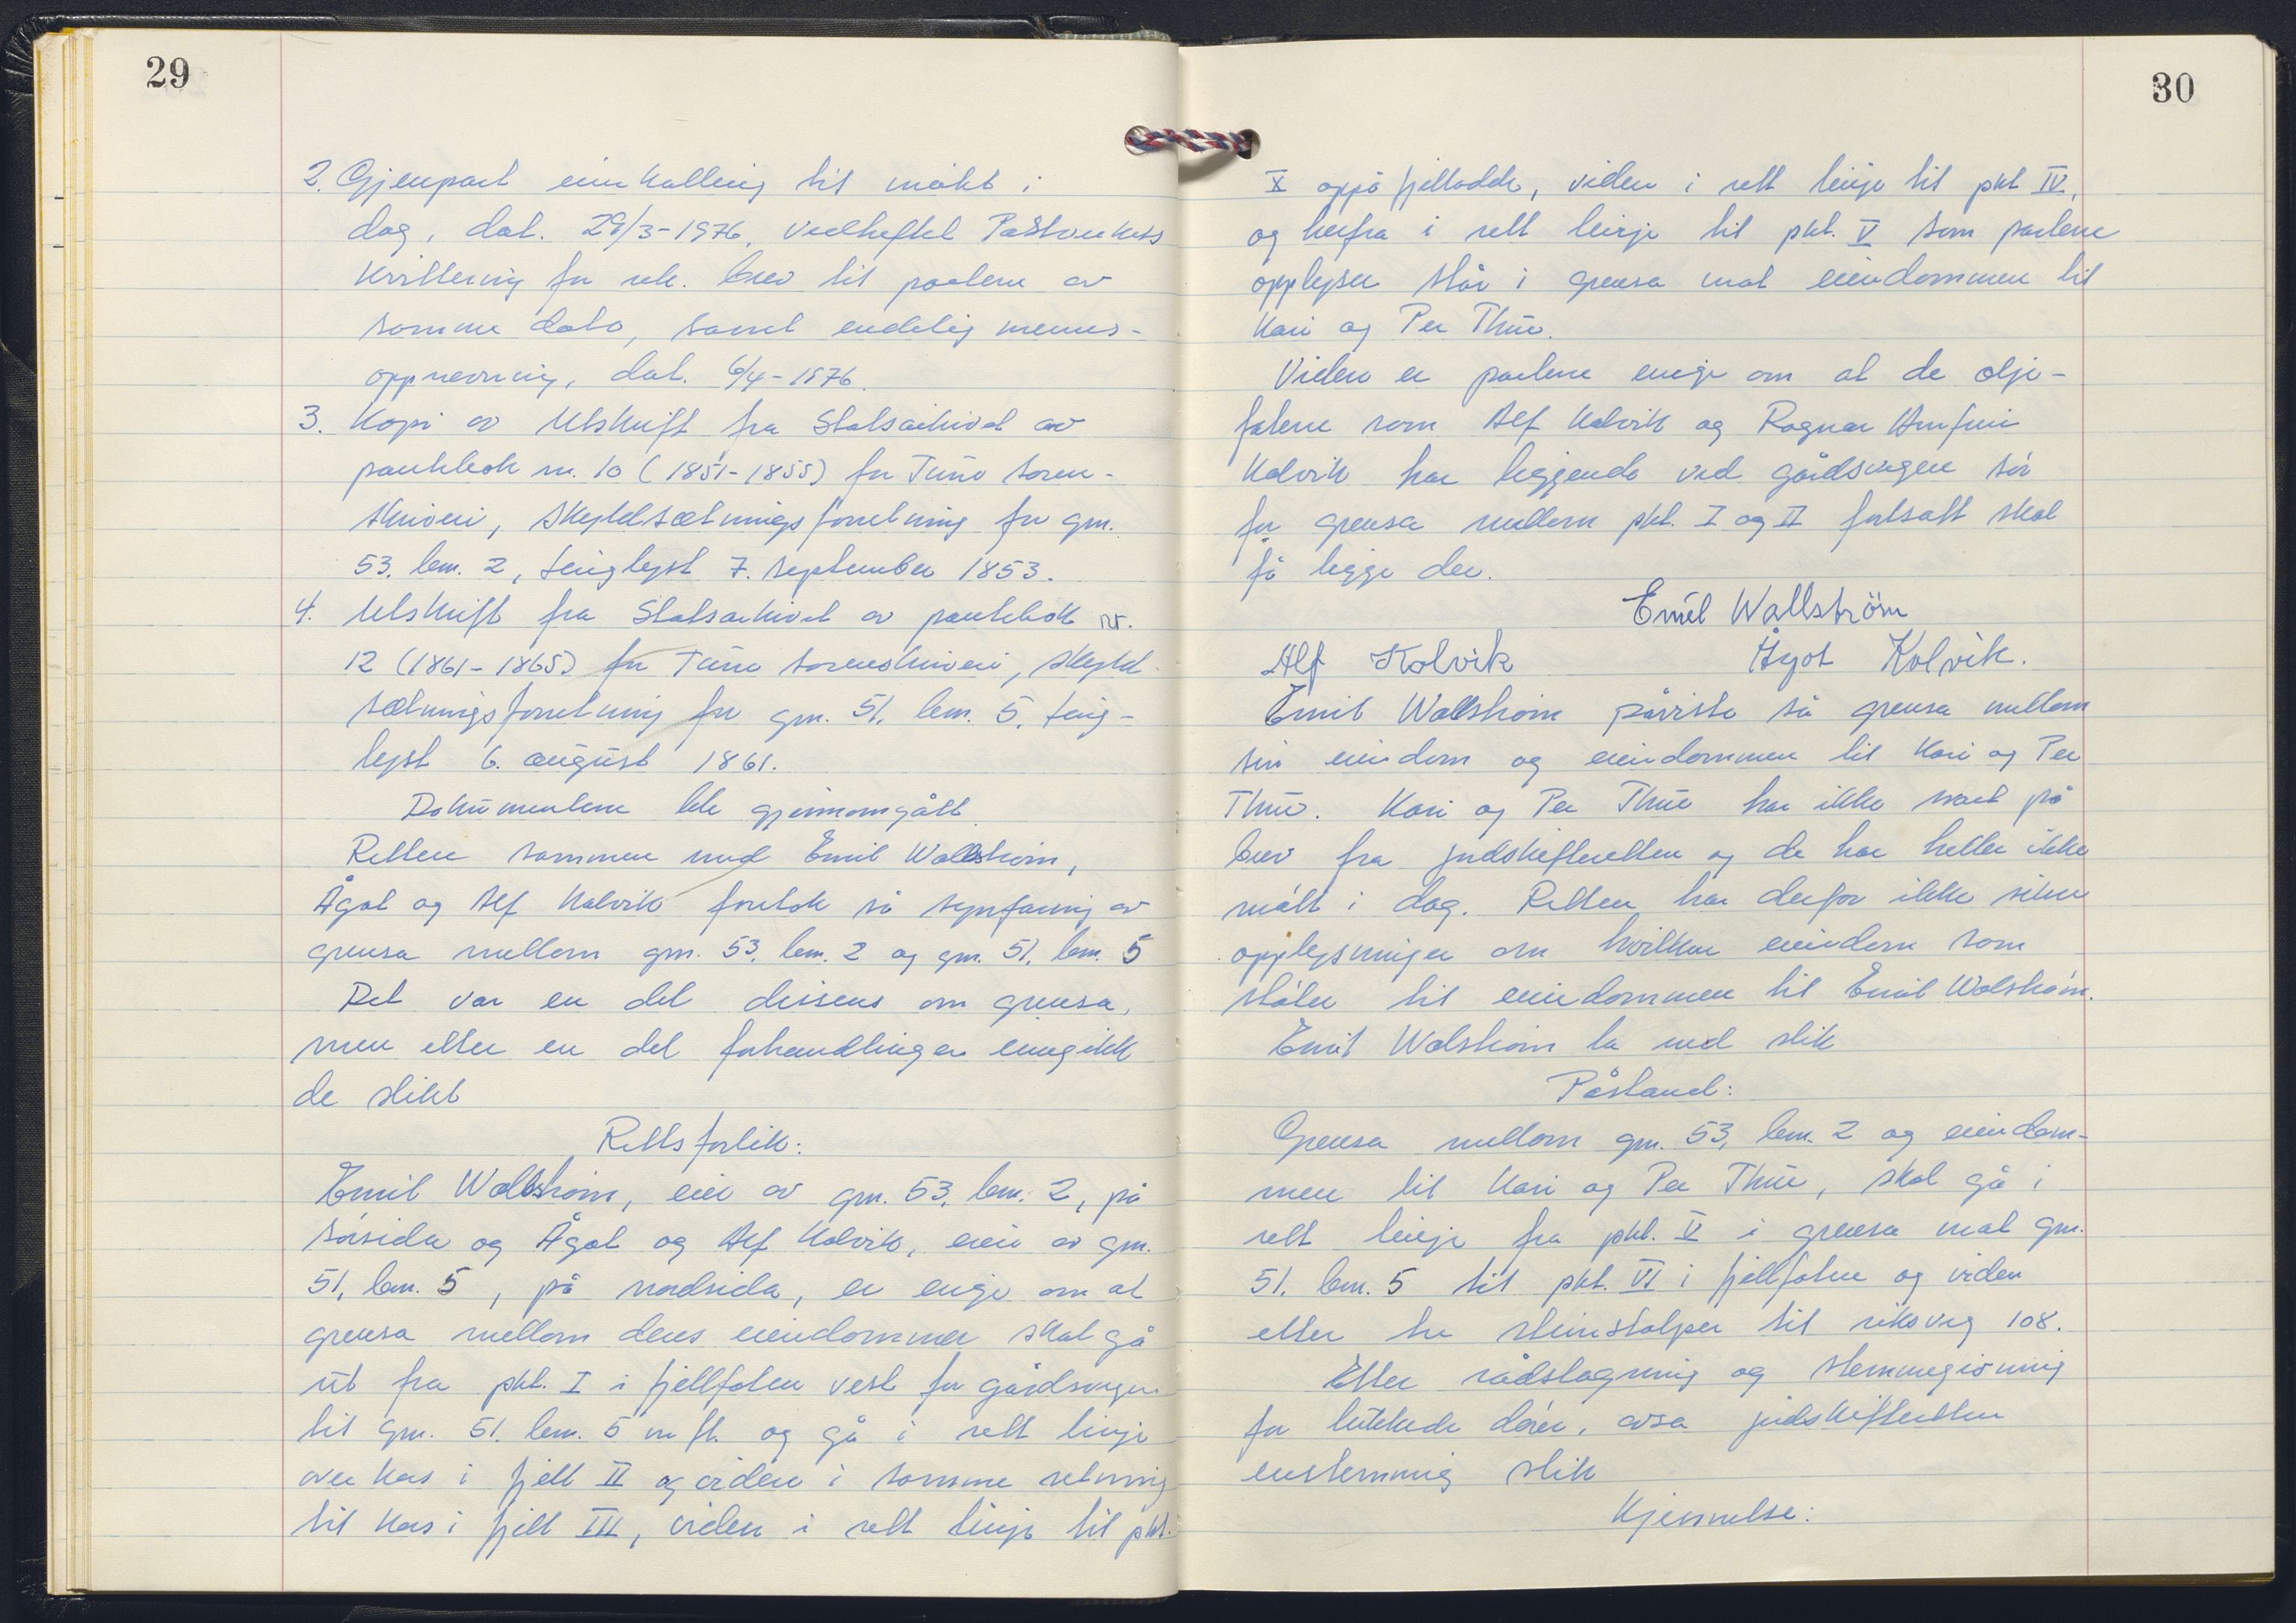 29
2. Gjenpart innkalling til møte i
dag, dat. 29/3-1976, vedheftet Postverkets
kvittering for rek. brev til partene av
samme dato, samt endelig menns-
oppnevning, dat. 6/4-1976.
3. Kopi av utskrift fra Statsarkivet av
pantebok nr. 10 (1851-1855) for Tune soren-
skriveri, skyldsætningsforretning for gnr.
53, bnr. 2, tinglyst 7. september 1853.
4. Utskrift fra Statsarkivet av pantebok nr.
12 (1861-1865) for Tune sorenskriveri, skyld-
sætningsforretning for gnr. 51, bnr. 5, ting-
lyst 6. august 1861.
Dokumentene ble gjennomgått.
Retten sammen med Emil Wallström,
Ågot og Alf Kolvik foretok så synfaring av
grensa mellom gnr. 53, bnr. 2 og gnr. 51, bnr. 5
Det var en del dissens om grensa,
men etter en del forhandlinger inngikk
de slikt
Rettsforlik:
Emil Wallström, eier av gnr. 53, bnr. 2, på
sørsida og Ågot og Alf Kolvik, eier av gnr.
51, bnr. 5, på nordsida, er enige om at
grensa mellom deres eiendommer skal gå
ut fra pkt. I i fjellfoten vest for gårdsvegen
til gnr. 51, bnr. 5 m fl. og gå i rett linje
over kors i fjell II og videre i samme retning
til kors i fjell III, videre i rett linje til pkt.
30
X oppå fjellodde, videre i rett linje til pkt IV,
og herfra i rett linje til pkt. V som partene
opplyser står i grensa mot eiendommen til
Kari og Per Thue.
Videre er partene enige om at de olje-
fatene som Alf Kolvik og Ragnar Arnfinn
Kolvik har liggende ved gårdsvegen sør
for grensa mellom pkt. I og II fortsatt skal
få ligge der.
Emil Wallström
Alf Kolvik Ågot Kolvik.
Emil Wallström påviste så grensa mellom
sin eiendom og eiendommen til Kari og Per
Thue. Kari og Per Thue har ikke svart på
brev fra jordskifteretten og de har heller ikke
møtt i dag. Retten har derfor ikke sikre
opplysninger om hvilken eiendom som
støter til eiendommen til Emil Walström.
Emil Walström la ned slik
Påstand:
Grensa mellom gnr. 53, bnr. 2 og eiendom-
men til Kari og Per Thue, skal gå i
rett linje fra pkt. V i grensa mot gnr.
51, bnr. 5 til pkt. VI i fjellfoten og videre
etter tre steinstolper til riksveg 108.
Etter rådslagning og stemmegivning
for lukkede dører, avsa jordskifteretten
enstemmig slik
Kjennelse: